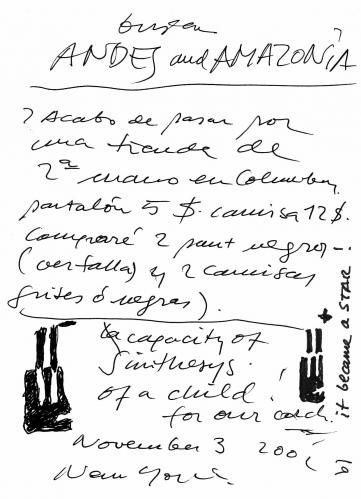 ANDES and AMAZONIA
? Acabo de pasar por
una tienda de
2ª mano en Columbus,
pantalón 5 $. camisa 12 $.
Compraré 2 pant negros
(ver talla) y 2 camisas
grises ó negras).
capacity of
Sinthesys
of a child!
for our
November 3
New York.
it became a STAR!